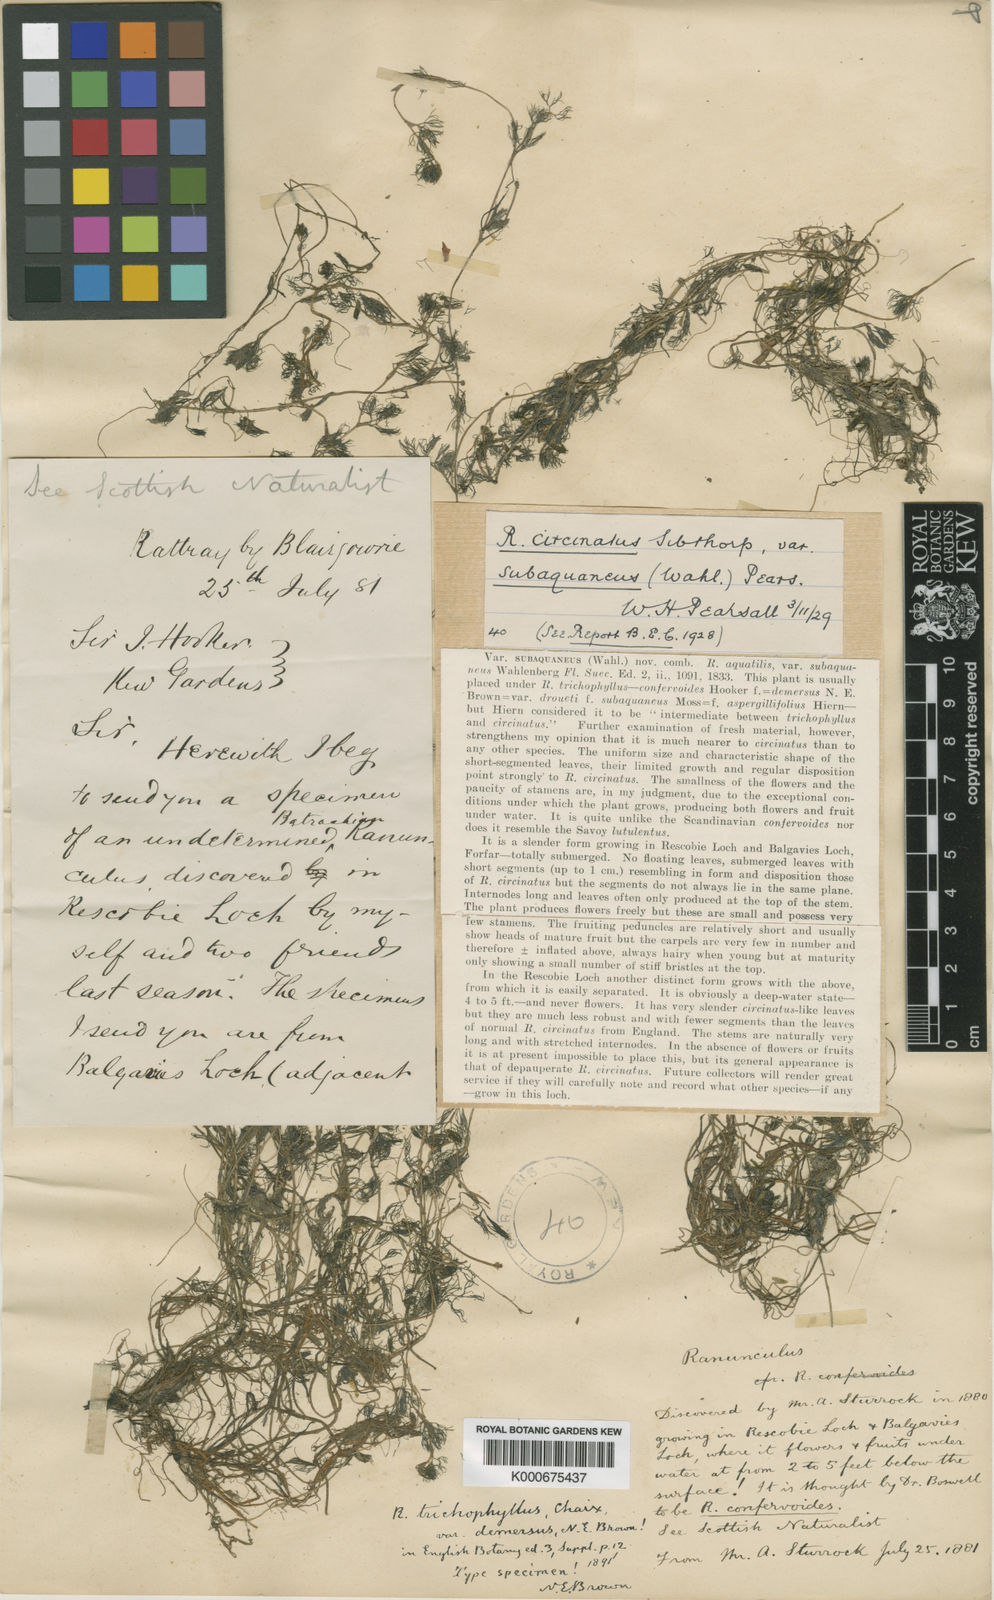 See Scottish Naturalist
Rattray by Blairgowrie
25th July 81
Sir J. Hooker.
Kew Gardens
Sir,
Herewith I beg
to send you a specimen
Batrachian
of an undetermined Ranun-
culus, discovered by in
Rescobie Loch by my-
self and two friends
last season. The specimens
I send you are from
Balgavies Loch (adjacent
R. circinatus Sibthorp, var.
subaquaneus (Wahl.) Pears.
W. H. Pearsall 3/11/29
40 (See Report B. E. C. 1928)
Var. SUBAQUANEUS (Wahl.) nov. comb. R. aquatilis, var. subaqua-
neus Wahlenberg Fl. Suec. Ed. 2, ii., 1091, 1833. This plant is usually
placed under R. trichophyllus—confervoides Hooker f.=demersus N. E.
Brown=var. droueti f. subaquaneus Moss=f. aspergillifolius Hiern—
but Hiern considered it to be "intermediate between trichophyllus
and circinatus." Further examination of fresh material, however,
strengthens my opinion that it is much nearer to circinatus than to
any other species. The uniform size and characteristic shape of the
short-segmented leaves, their limited growth and regular disposition
point strongly to R. circinatus. The smallness of the flowers and the
paucity of stamens are, in my judgment, due to the exceptional con-
ditions under which the plant grows, producing both flowers and fruit
under water. It is quite unlike the Scandinavian confervoides nor
does it resemble the Savoy lutulentus.
It is a slender form growing in Rescobie Loch and Balgavies Loch,
Forfar—totally submerged. No floating leaves, submerged leaves with
short segments (up to 1 cm.) resembling in form and disposition those
of R. circinatus but the segments do not always lie in the same plane.
Internodes long and leaves often only produced at the top of the stem.
The plant produces flowers freely but these are small and possess very
few stamens. The fruiting peduncles are relatively short and usually
show heads of mature fruit but the carpels are very few in number and
therefore ± inflated above, always hairy when young but at maturity
only showing a small number of stiff bristles at the top.
In the Rescobie Loch another distinct form grows with the above,
from which it is easily separated. It is obviously a deep-water state—
4 to 5 ft.—and never flowers. It has very slender circinatus-like leaves
but they are much less robust and with fewer segments than the leaves
of normal R. circinatus from England. The stems are naturally very
long and with stretched internodes. In the absence of flowers or fruits
it is at present impossible to place this, but its general appearance is
that of depauperate R. circinatus. Future collectors will render great
service if they will carefully note and record what other species—if any
—grow in this loch.
ROYAL
BOTANIC
GARDENS
KEW
0 1 2 3 4 5 6 7 8 9 10
cm
copyright reserved
ROYAL GARDENS KEW
40
ROYAL BOTANIC GARDENS KEW
K000675437
R. trichophyllus, Chaix,
var. demersus, N. E. Brown!
in English Botany ed. 3, Suppl. p. 12.
1891
Type specimen!
N. E. Brown
Ranunculus
cfr. R. confervoides
Discovered by Mr. A. Sturrock in 1880
growing in Rescobie Loch & Balgavies
Loch, where it flowers & fruits under
water at from 2 to 5 feet below the
surface! It is thought by Dr. Boswell
to be R. confervoides.
See Scottish Naturalist
From Mr. A. Sturrock July 25. 1881